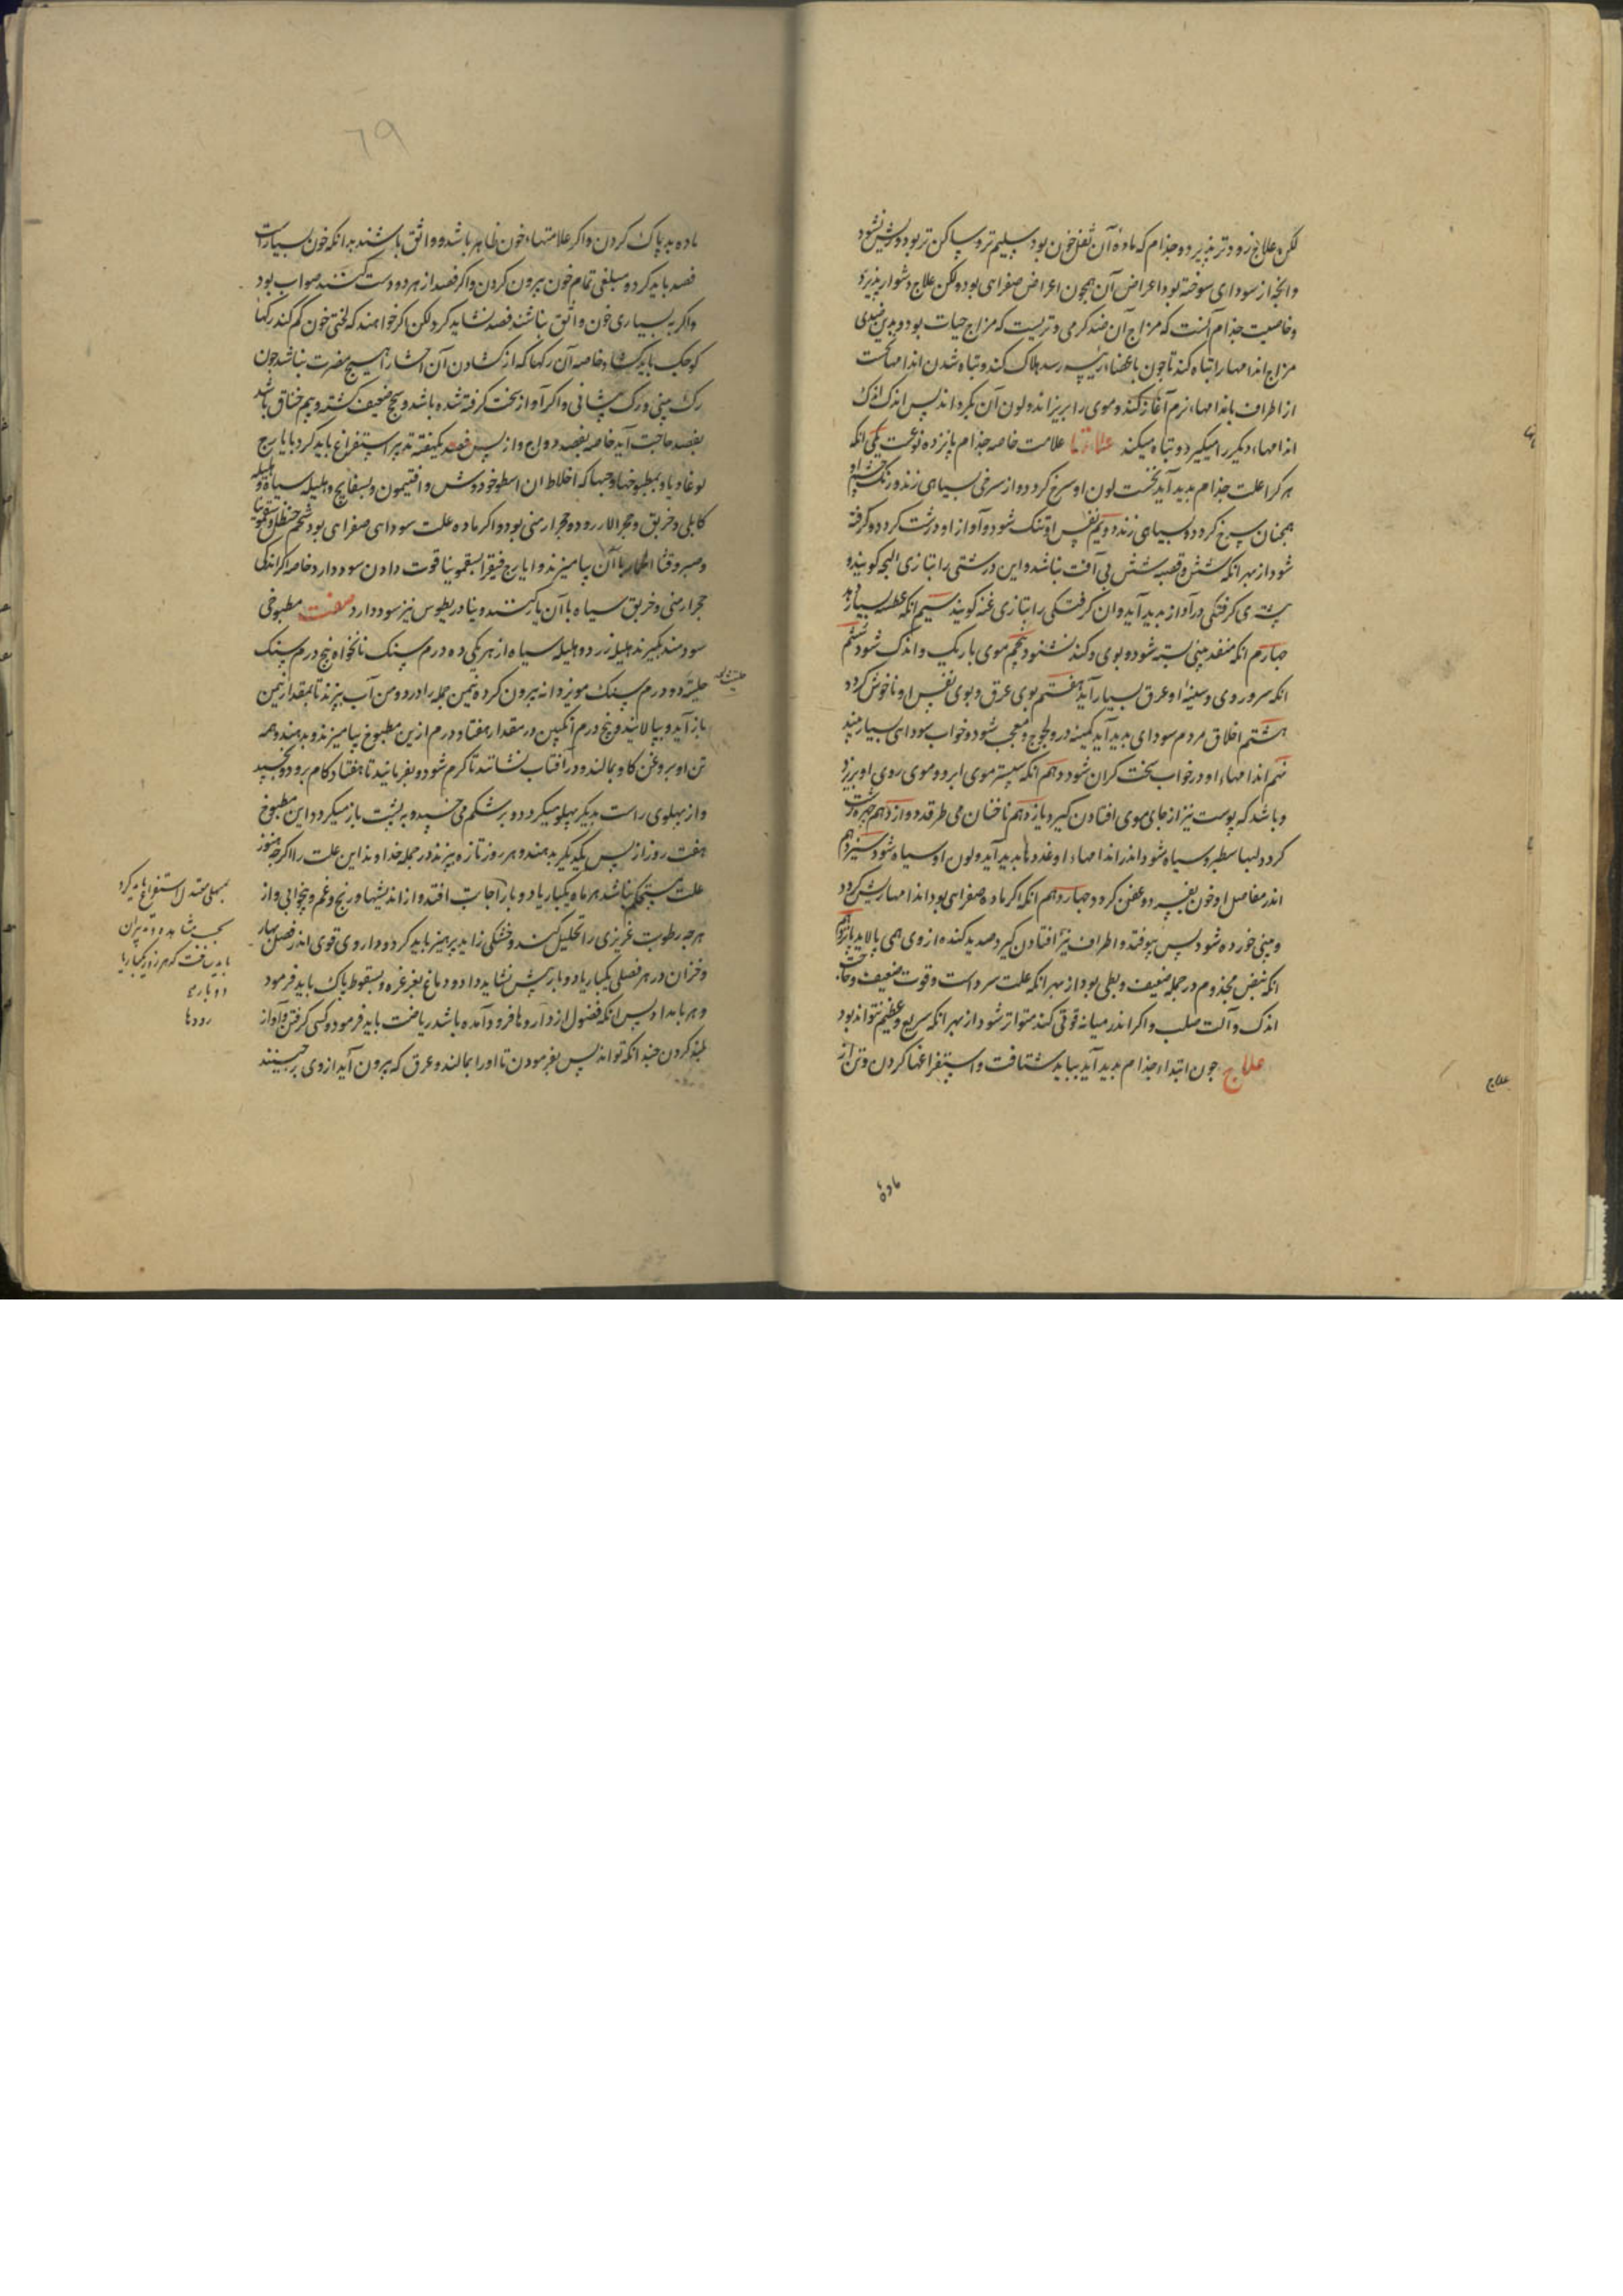 لکن علاج زودتر پذیرد و جذام که مادهٔ آن ثفل خون بود سلیم تر و ساکن تر بود و ریش نشود
و انچه از سودای سوخته بود اعراض آن همچون اعراض صفرای بود ولکن علاج دشوار پذیرد
و خاصیت جذام آنست که مزاج آن ضد گرمی و تریست که مزاج حیات بود و بدین ضدی
مزاج اندامها را تباه کند تا چون باعضاء رئیسه رسد هلاک کند و تباه شدن اندامها نخست
از اطراف باندامهاء نرم آغاز کند و موی را بریزاند و لون آن بگرداند پس اندک اندک
اندامهاء دیگر را میگیرد و تباه میکند علامتها علامت خاصه جذام پانزده نوعست یکی انکه
هر کرا علت جذام پدید آید نخست لون او سرخ گردد و از سرخی بسیاهی زند و رنگ چشم او
همچنان سرخ گردد و بسیاهی زند دویم نفس او تنک شود و آواز او درشت گردد و گرفته
شود از بهر انکه شش و قصبه شش بی آفت نباشد و این درشتی را بتازی البحه گویند و
گرفتگی در آواز پدید آید و ان گرفتگی را بتازی غنه گویند سیم انکه عطسه بسیار
چهارم انکه منفد بینی بسته شود و بوی و گند نشنود پنجم موی باریک و اندک شود ششم
انکه سر و روی و سینهٔ او عرق بسیار آید هفتم بوی عرق و بوی نفس او ناخوش گردد
هشتم اخلاق مردم سودای پدید آید کینه ور و لجوج و معجب شود و خواب سودای بسیار بیند
نهم اندامهاء او در خواب سخت گران شود دهم انکه سپس موی ابرو و موی روی او بریزد
و باشد که پوست نیز از جای موی افتادن گیرد یازدهم ناخنان می طرقد دوازدهم چهره زشت
گردد لبها سطبر و سیاه شود و اندر اندامهاء او غددها پدید آید و لون او سیاه شود سیزدهم
اندر مفاصل او خون بفسرد و عفن گردد چهاردهم انکه اگر ماده صفرای بود اندامها ریش گردد
و بینی خورده شود پس بیوفتد و اطراف نیز افتادن گیرد و صدید گنده از وی همی پالاید پانزدهم
انکه نبض مجذوم در جمله ضعیف و بطی بود از بهر انکه علت سرد است و قوت ضعیف و حاجت
اندک و آلت صلب و اگر اندر میانه قوتی کند متواتر شود از بهر انکه سریع و عظیم نتواند بود
علاج چون ابتداء جذام پدید آید بباید شتافت و استفراغها کردن و تن از
علاج
ماده
٦٩
ماده بد پاک کردن و اگر علامتهاء خون ظاهر باشد و واثق باشند بدانکه خون بسیارست
فصد باید کرد و مبلغی تمام خون بیرون کردن و اگر فصد از هر دو دست کنند صواب بود
و اگر به بسیاری خون واثق نباشند فصد نشاید کرد لکن اگر خواهند که لختی خون کم کنند رگها
کوچک باید گشاد خاصه آن رگها که از گشادن آن احشا را هیچ مضرت نباشد چون
رگ بینی و رگ پیشانی و اگر آواز سخت گرفته شده باشد و ضعیف گشته و بیم خناق باشد
بفصد حاجت آید خاصه بفصد دواج و از پس فصد بیکهفته تدبیر استفراغ باید کرد بایارج
لوغادیا و بمطبوخها و حبها که اخلاط ان اسطوخودوش و افتیمون و بسفایج و هلیله سیاه و هلیله
کابلی و خربق و حجر الازورد و حجر ارمنی بود و اگر ماده علت سودای صفرای بود شحم حنظل و سقمونیا
و صبر و قثاء الحمار با آن بیامیزند و ایارج فیقرا بسقمونیا قوت دادن سود دارد خاصه اگر اندکی
حجر ارمنی و خربق سیاه با آن یار کنند و بنادریطوس نیز سود دارد صفت مطبوخی
سودمند بگیرند هلیله زرد و هلیله سیاه از هر یکی ده درم سنک نانخواه پنج درم سنک
دو درم سنک مویز دانه بیرون کرده نیمن جمله را در دو من آب بپزند تا بمقدار نیمن
باز آید و بپالایند و پنج درم انگبین در مقدار هفتاد درم ازین مطبوخ بیامیزند و بدهند و همه
تن او بروغن گاو بمالند و در آفتاب نشانند تا گرم شود و بفرمایند تا هفتاد گام برود و بخسپد
و از پهلوی راست بدیگر پهلو میگردد و بر شکم می خسپد و به پشت باز میگردد این مطبوخ
هفت روز از پس یکدیگر بدهند و هر روز تازه پزند در جمله خداوند این علت را اگر چه هنوز
علت مستحکم نباشد هر ماه یکبار یا دو بار اجابت افتد و از اندیشها و رنج و غم و بیخوابی و از
هر چه رطوبت غریزی را تحلیل کند و خشکی زاید پرهیز باید کرد و داروی قوی اندر فصل بهار
و خزان در هر فصلی یکبار یا دو بار بیش نشاید داد و دماغ بغرغره و بسقوط پاک باید فرمود
و هر بامداد پس انکه فضول از رودها فرود آمده باشد ریاضت باید فرمود و کشی گرفتن و آواز
بلند کردن چندانکه تواند پس بفرمودن تا او را بمالند و عرق که بیرون آید از وی برچینند
بمسهلی معتدل استفراغ باید کرد
باید
رودها